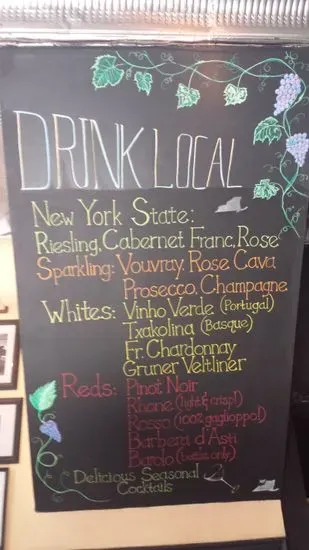 DRINK LOCAL
New York State:
Riesling, Cabernet Franc, Rose
Sparkling: Vouvray, Rose Cava
Prosecco, Champagne
Whites: Vinho Verde (Portugal)
Txakolina (Basque)
Fr. Chardonnay
Gruner Veltliner
Reds: Pinot Noir
Rhone (light & crisp!)
Rosso (100% gaglioppo!)
Barbera d'Asti
Barolo (bottles only)
Delicious Seasonal
Cocktails